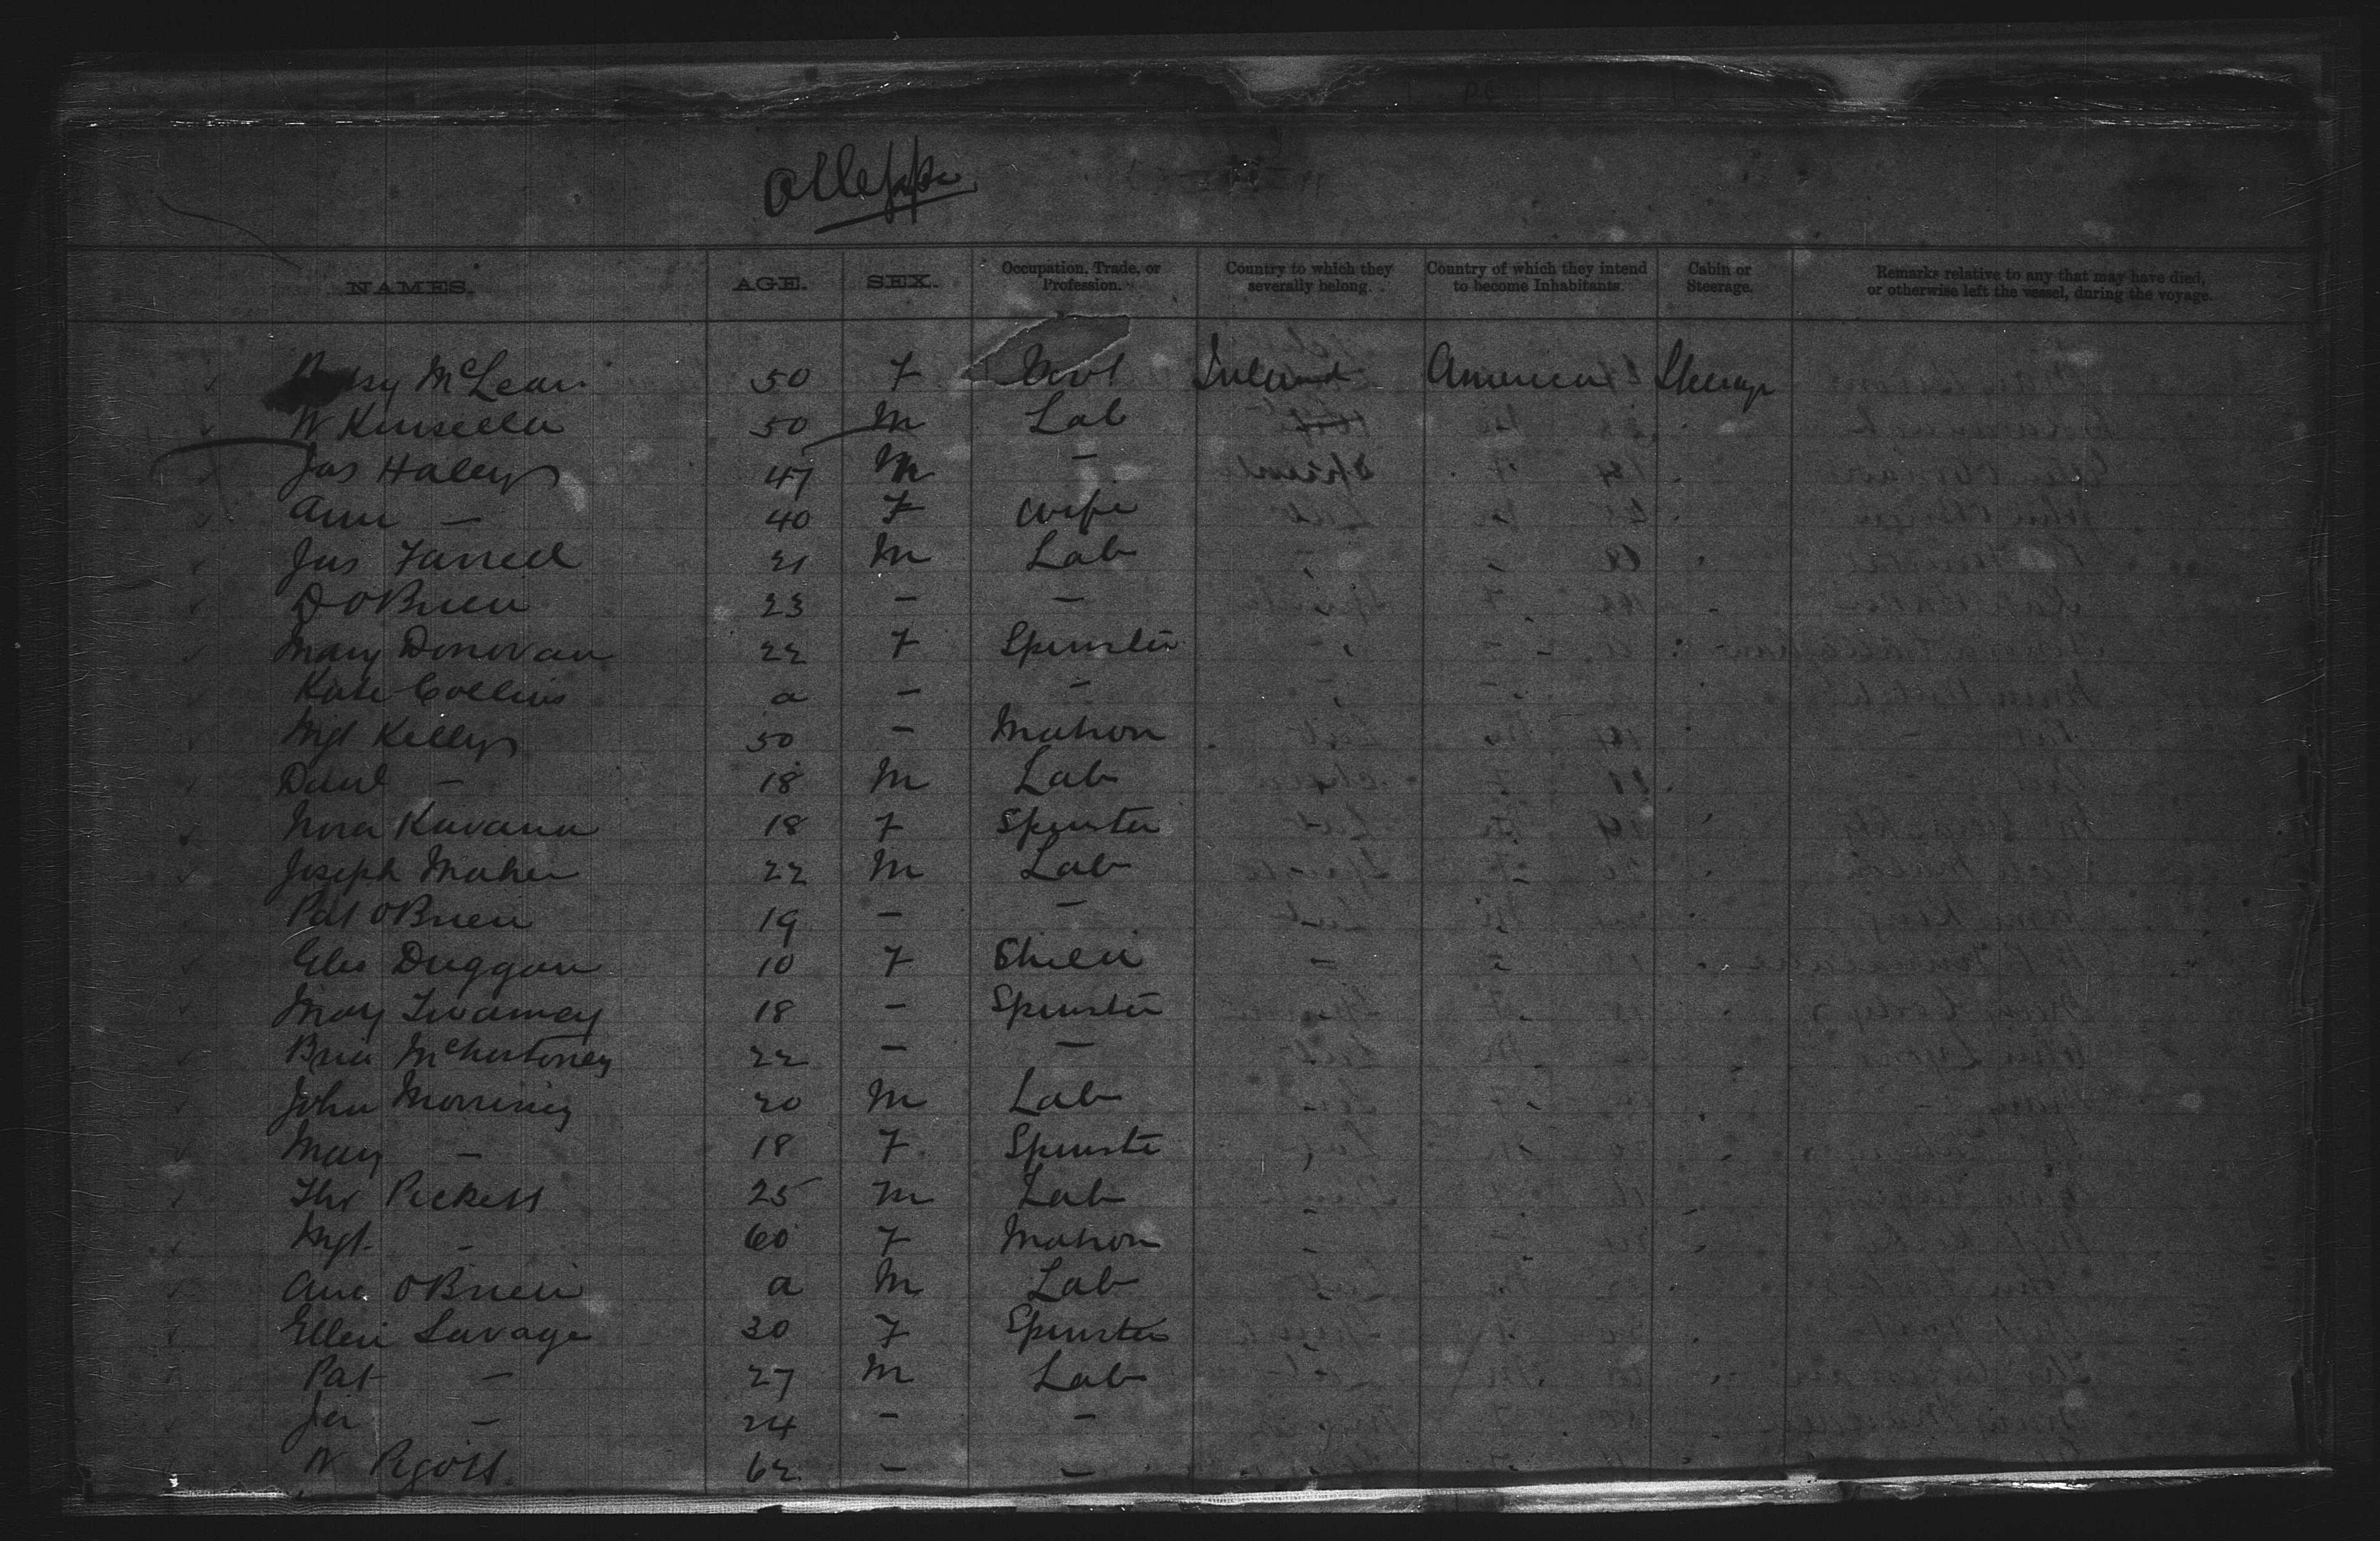 Aleppo
NAMES. AGE. SEX. Occupation, Trade, or Profession. Country to which they severally belong. Country of which they intend to become Inhabitants. Cabin or Steerage. Remarks relative to any that may have died, or otherwise left the vessel, during the voyage.
McLean 50 F Ireland America Steerage
W Kinsella 50 M Lab
Jas Haley 47 M -
Ann - 40 F Wife
Jas Farrell 21 M Lab
D OBrien 23 - -
Mary Donovan 22 F Spinster
Kate Collins a - -
Mgt Kelly 50 - Matron
Danl - 18 M Lab
Nora Kavana 18 F Spinster
Joseph Maher 22 M Lab
Pat OBrien 19 - -
Duggan 10 F
Mary Twomey 18 - Spinster
22 - -
John Morrissy 20 M Lab
Mary - 18 F Spinste
Thos Pickett 25 M Lab
Mgt - 60 F Matron
OBrien a M Lab
Ellen Savage 30 F Spinster
Pat - 27 M Lab
Jer - 24 - -
W Pigott 62 - -